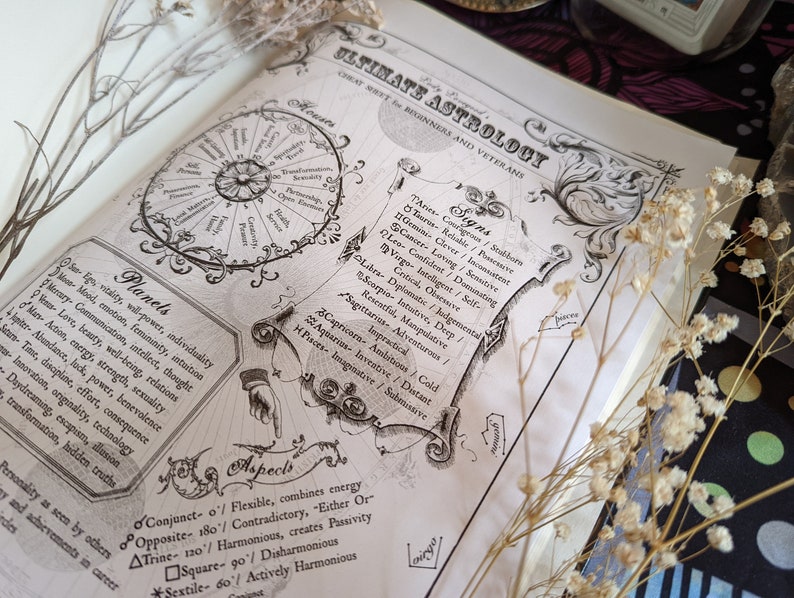 Lady Leesword
ULTIMATE ASTROLOGY
CHEAT SHEET for BEGINNERS AND VETERANS
Houses
Spirituality,
Travel
Transformation,
Sexuality
Partnership,
Open Enemies
Health,
Service
Creativity,
Pleasure
Family,
Home
Local Matters,
Communication
Possessions,
Finance
Self,
Persona
Signs
♈Aries- Courageous / Stubborn
♉Taurus- Reliable / Possessive
♊Geminis- Clever / Inconsistent
♋Cancer- Loving / Sensitive
♌Leo- Confident / Dominating
♍Virgo- Intelligent / Self-
Critical Obsessive
♎Libra- Diplomatic / Judgemental
♏Scorpio- Intuitive, Deep /
Resentful, Manipulative
♐Sagittarius- Adventurous /
Impractical
♑Capricorn- Ambitious / Cold
♒Aquarius- Inventive / Distant
♓Pisces- Imaginative / Submissive
pisces
gemini
virgo
Planets
Sun- Ego, vitality, will-power, individuality
Moon- Mood, emotion, femininity, intuition
Mercury- Communication, intellect, thought
Venus- Love, beauty, well-being, relations
Mars- Action, energy, strength, sexuality
Jupiter- Abundance, luck, power, benevolence
Time, discipline, effort, consequence
Innovation, originality, technology
Daydreaming, escapism, illusion
transformation, hidden truths
Personality as seen by others
and achievements in career
Aspects
☌Conjunct- 0°/ Flexible, combines energy
☍Opposite- 180°/ Contradictory, -Either Or-
△Trine- 120°/ Harmonious, creates Passivity
□Square- 90°/ Disharmonious
⚹Sextile- 60°/ Actively Harmonious